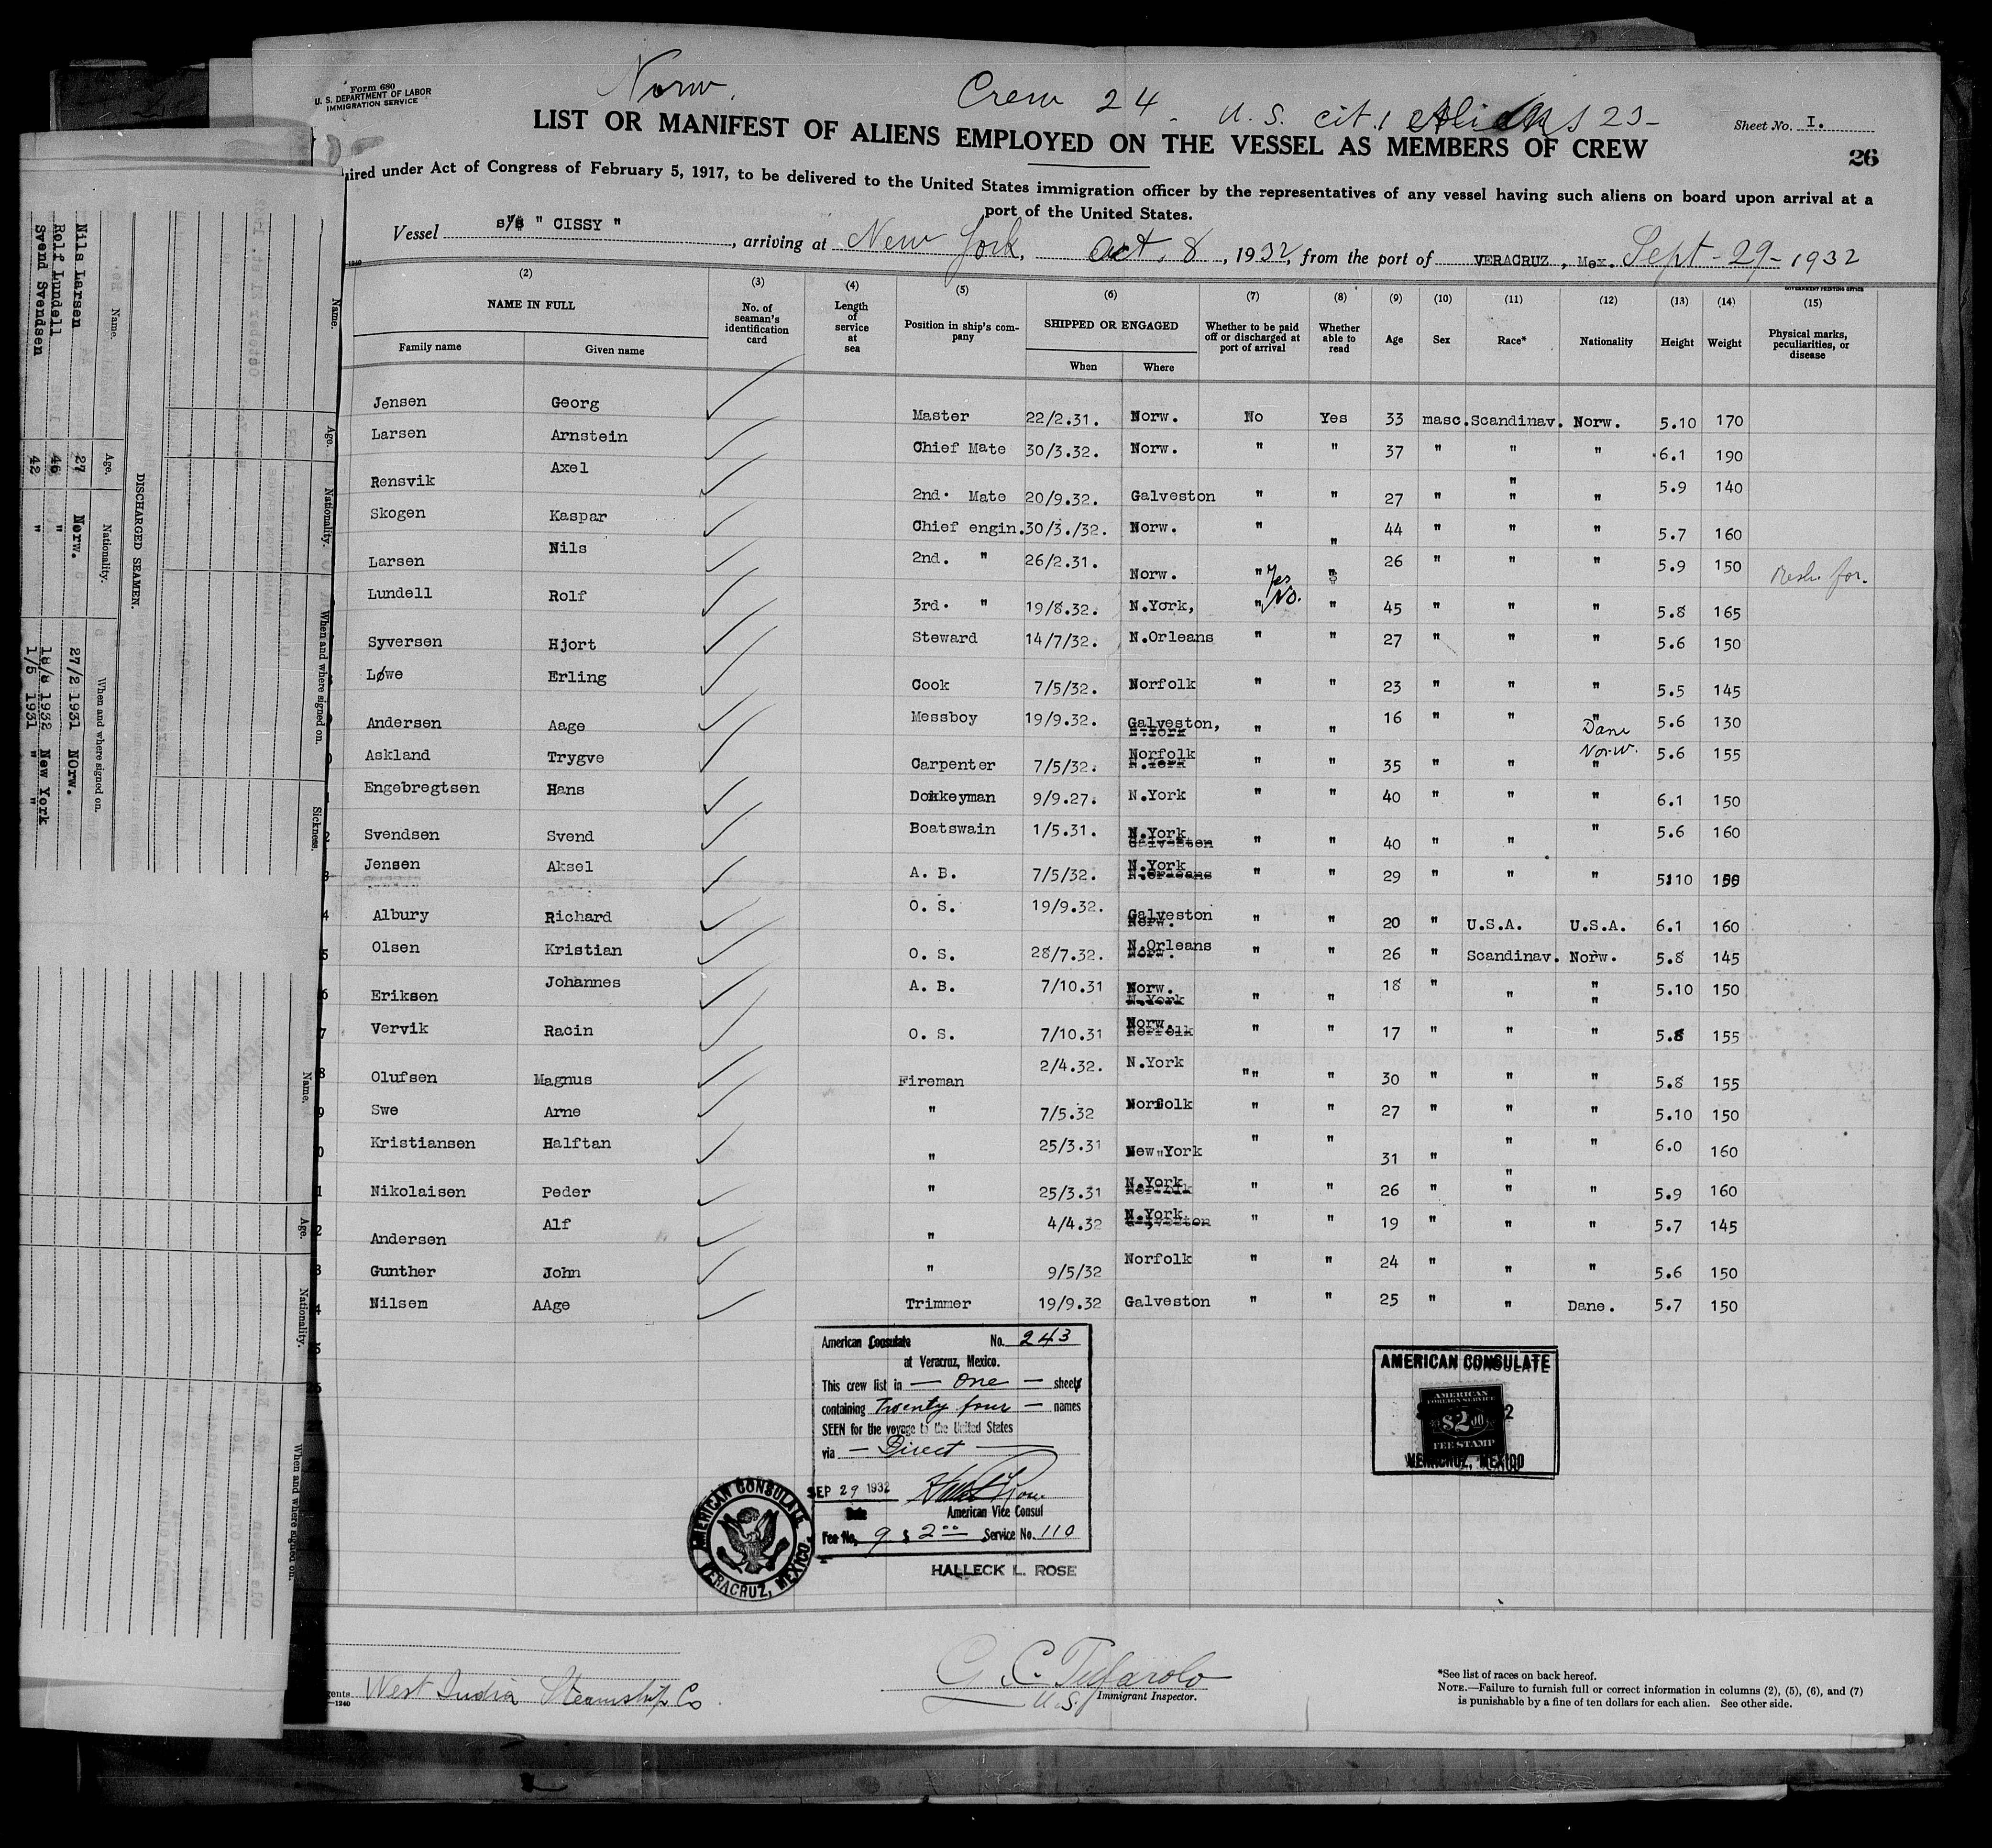 Form 680
U. S. DEPARTMENT OF LABOR
IMMIGRATION SERVICE
Norw.
Crew 24 - U. S. cit. 1 Aliens 23 -
Sheet No. I.
LIST OR MANIFEST OF ALIENS EMPLOYED ON THE VESSEL AS MEMBERS OF CREW
26
uired under Act of Congress of February 5, 1917, to be delivered to the United States immigration officer by the representatives of any vessel having such aliens on board upon arrival at a
port of the United States.
Vessel s/s " CISSY ", arriving at New York, Oct. 8, 1932, from the port of VERACRUZ, Mex. Sept - 29 - 1932
GOVERNMENT PRINTING OFFICE
(2) (3) (4) (5) (6) (7) (8) (9) (10) (11) (12) (13) (14) (15)
NAME IN FULL
Family name
Given name
No. of seaman's identification card
Length of service at sea
Position in ship's company
SHIPPED OR ENGAGED
When
Where
Whether to be paid off or discharged at port of arrival
Whether able to read
Age
Sex
Race*
Nationality
Height
Weight
Physical marks, peculiarities, or disease
Jensen Georg Master 22/2.31. Norw. No Yes 33 masc. Scandinav. Norw. 5.10 170
Larsen Arnstein Chief Mate 30/3.32. Norw. " " 37 " " " 6.1 190
Rensvik Axel 2nd. Mate 20/9.32. Galveston " " 27 " " " 5.9 140
Skogen Kaspar Chief engin. 30/3./32. Norw. " " 44 " " " 5.7 160
Larsen Nils 2nd. " 26/2.31. Norw. " Yes " 26 " " " 5.9 150
Lundell Rolf 3rd. " 19/8.32. N.York, " No. " 45 " " " 5.8 165
Syversen Hjort Steward 14/7/32. N.Orleans " " 27 " " " 5.6 150
Løwe Erling Cook 7/5/32. Norfolk " " 23 " " " 5.5 145
Andersen Aage Messboy 19/9.32. Galveston, " " 16 " " " Dane 5.6 130
Askland Trygve Carpenter 7/5/32. Norfolk " " 35 " " Norw. " 5.6 155
Engebregtsen Hans Donkeyman 9/9.27. N.York " " 40 " " " 6.1 150
Svendsen Svend Boatswain 1/5.31. N.York " " 40 " " " 5.6 160
Jensen Aksel A. B. 7/5/32. N.York " " 29 " " " 5.10
4 Albury Richard O. S. 19/9.32. Galveston " " 20 " U.S.A. U.S.A. 6.1 160
5 Olsen Kristian O. S. 28/7.32. N.Orleans " " 26 " Scandinav. Norw. 5.8 145
6 Eriksen Johannes A. B. 7/10.31 Norw. " " 18 " " " 5.10 150
7 Vervik Racin O. S. 7/10.31 Norw. " " 17 " " " 5.8 155
8 Olufsen Magnus Fireman 2/4.32. N.York "" " 30 " " " 5.8 155
9 Swe Arne " 7/5.32 Norfolk " " 27 " " " 5.10 150
0 Kristiansen Halftan " 25/3.31 New York " " 31 " " " 6.0 160
1 Nikolaisen Peder " 25/3.31 N.York " " 26 " " " 5.9 160
2 Andersen Alf " 4/4.32 N.York " " 19 " " " 5.7 145
3 Gunther John " 9/5/32 Norfolk " " 24 " " " 5.6 150
4 Nilsem AAge Trimmer 19/9.32 Galveston " " 25 " " Dane. 5.7 150
American Consulate No. 243
at Veracruz, Mexico.
This crew list in — One — sheet
containing Twenty four — names
SEEN for the voyage to the United States
via — Direct —
SEP 29 1932
Date
American Vice Consul
Fee No. 9 $ 2.00 Service No. 110
HALLECK L. ROSE
AMERICAN CONSULATE
VERACRUZ, MEXICO.
AMERICAN CONSULATE
AMERICAN
FOREIGN SERVICE
$2.00
FEE STAMP
VERACRUZ, MEXICO
gents West India Steamship Co
—1240
G. C. Tufarolo
U.S. Immigrant Inspector.
*See list of races on back hereof.
NOTE.—Failure to furnish full or correct information in columns (2), (5), (6), and (7)
is punishable by a fine of ten dollars for each alien. See other side.
DISCHARGED SEAMEN.
Name. Age. Nationality. When and where signed on.
Nils Larsen 27 Norw. 27/2 1931 NOrw.
Rolf Lundell 46 " 18/8 1932 New York
Svend Svendsen 42 " 1/5 1931 "
Name. Age. Nationality. When and where signed on. Sickness.
Name. Age. Nationality. When and where signed on.